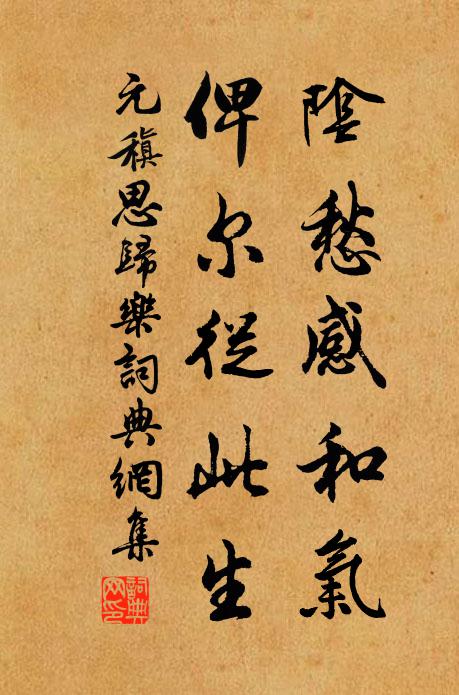 陰愁感和氣
俾尔從此生
元稹思歸樂詞典網集
詞典
网印